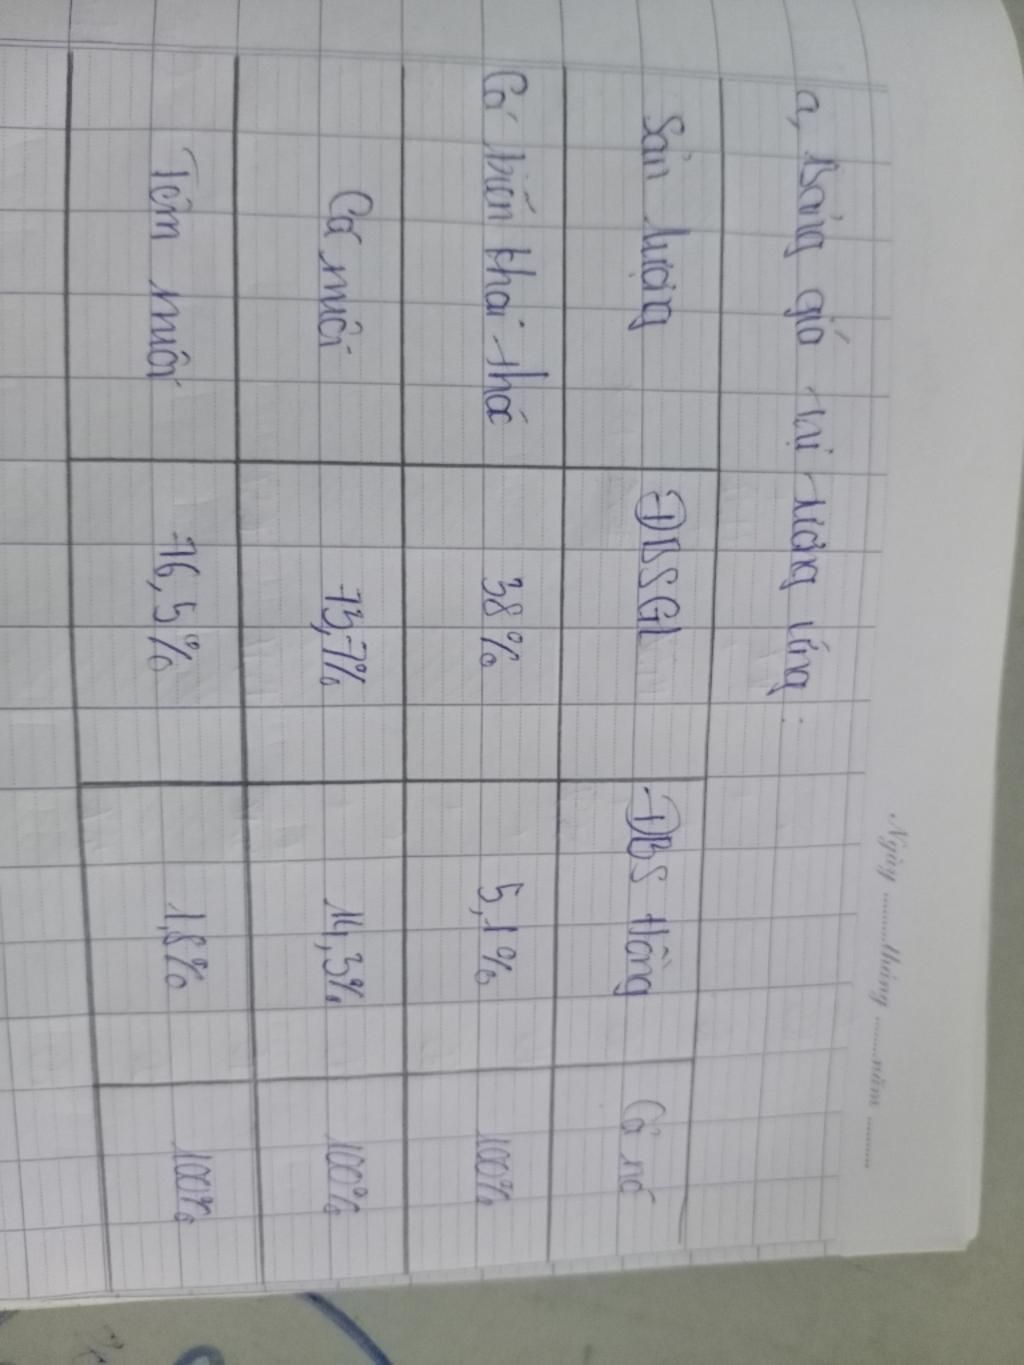 Ngày ........ tháng ........ năm ........
a, Bảng giá trị tương ứng:
Sản lượng ĐBSCL ĐBS Hồng Cả nc
Cá biển khai thác 38% 5,1% 100%
Cá nuôi 73,7% 14,3% 100%
Tôm nuôi 76,5% 1,8% 100%